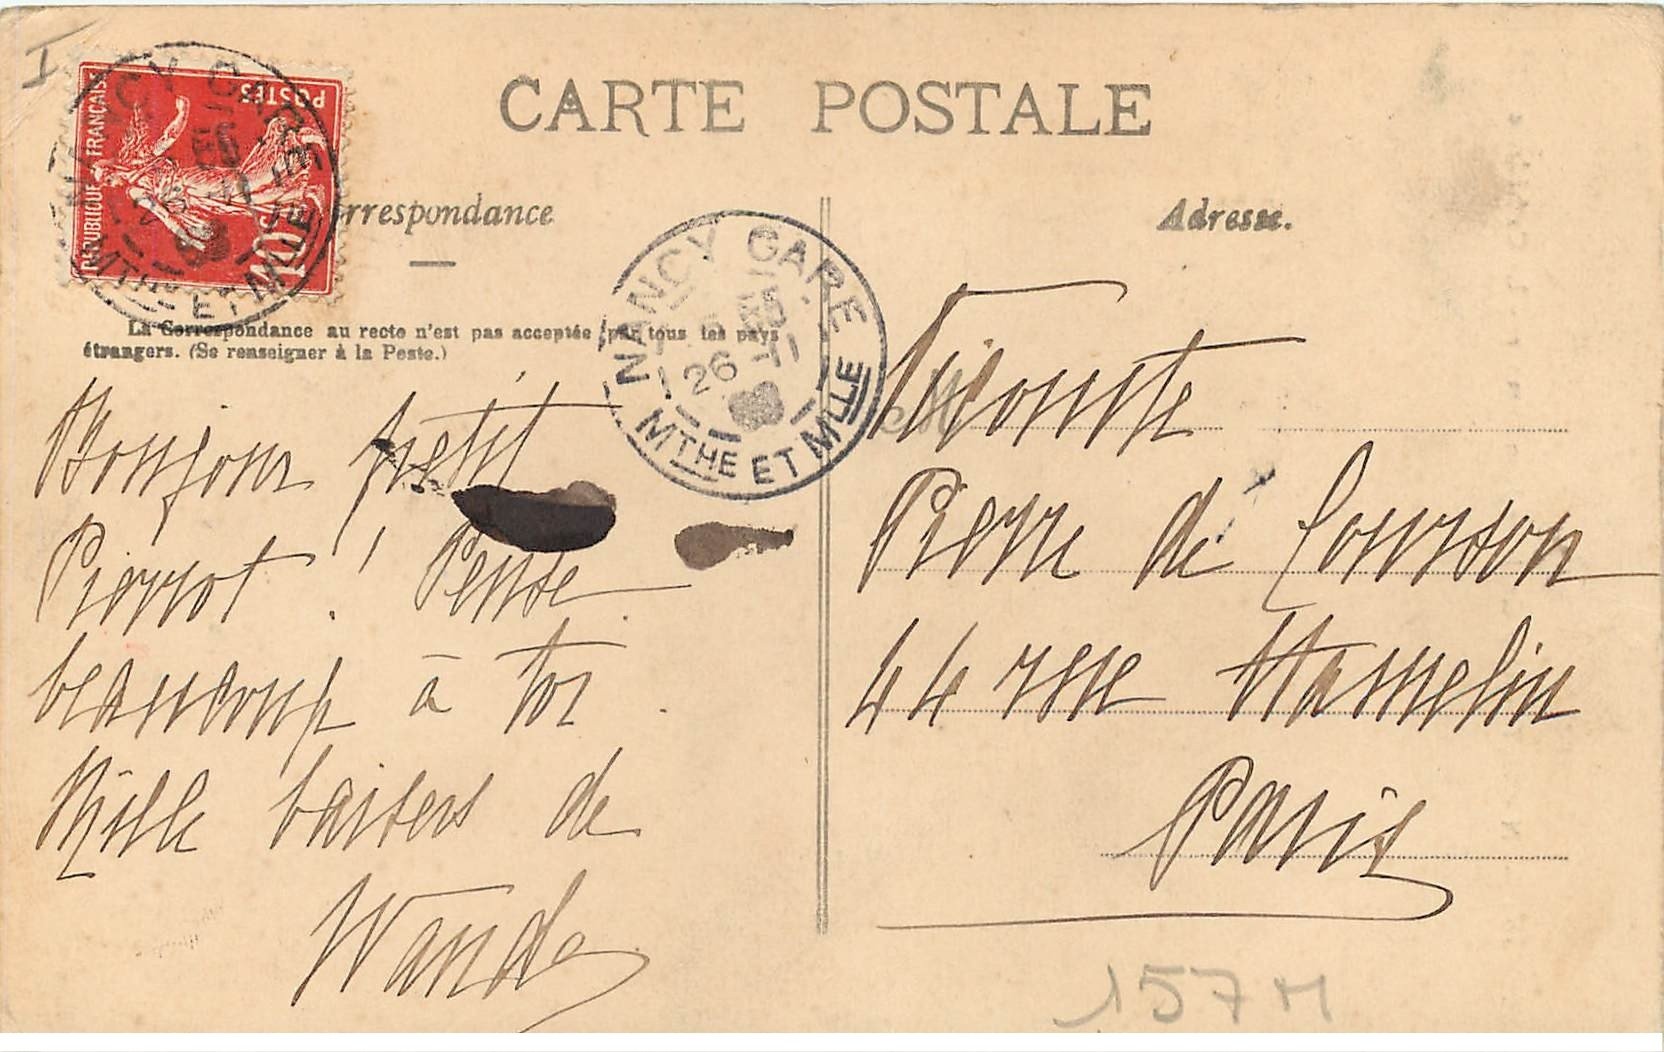 I
CARTE POSTALE
RÉPUBLIQUE FRANÇAISE
POSTES
10c
NANCY GARE
26
MTHE ET MLLE
Correspondance
La Correspondance au recto n'est pas acceptée par tous les pays
étrangers. (Se renseigner à la Poste.)
Bonjour petit
Pierrot ! Pense
beaucoup à toi.
Mille baisers de
Wanda
NANCY GARE
26 - 11
MTHE ET MLLE
Adresse.
Vicomte
Pierre de Courson
44 rue Hamelin
Paris
157 M